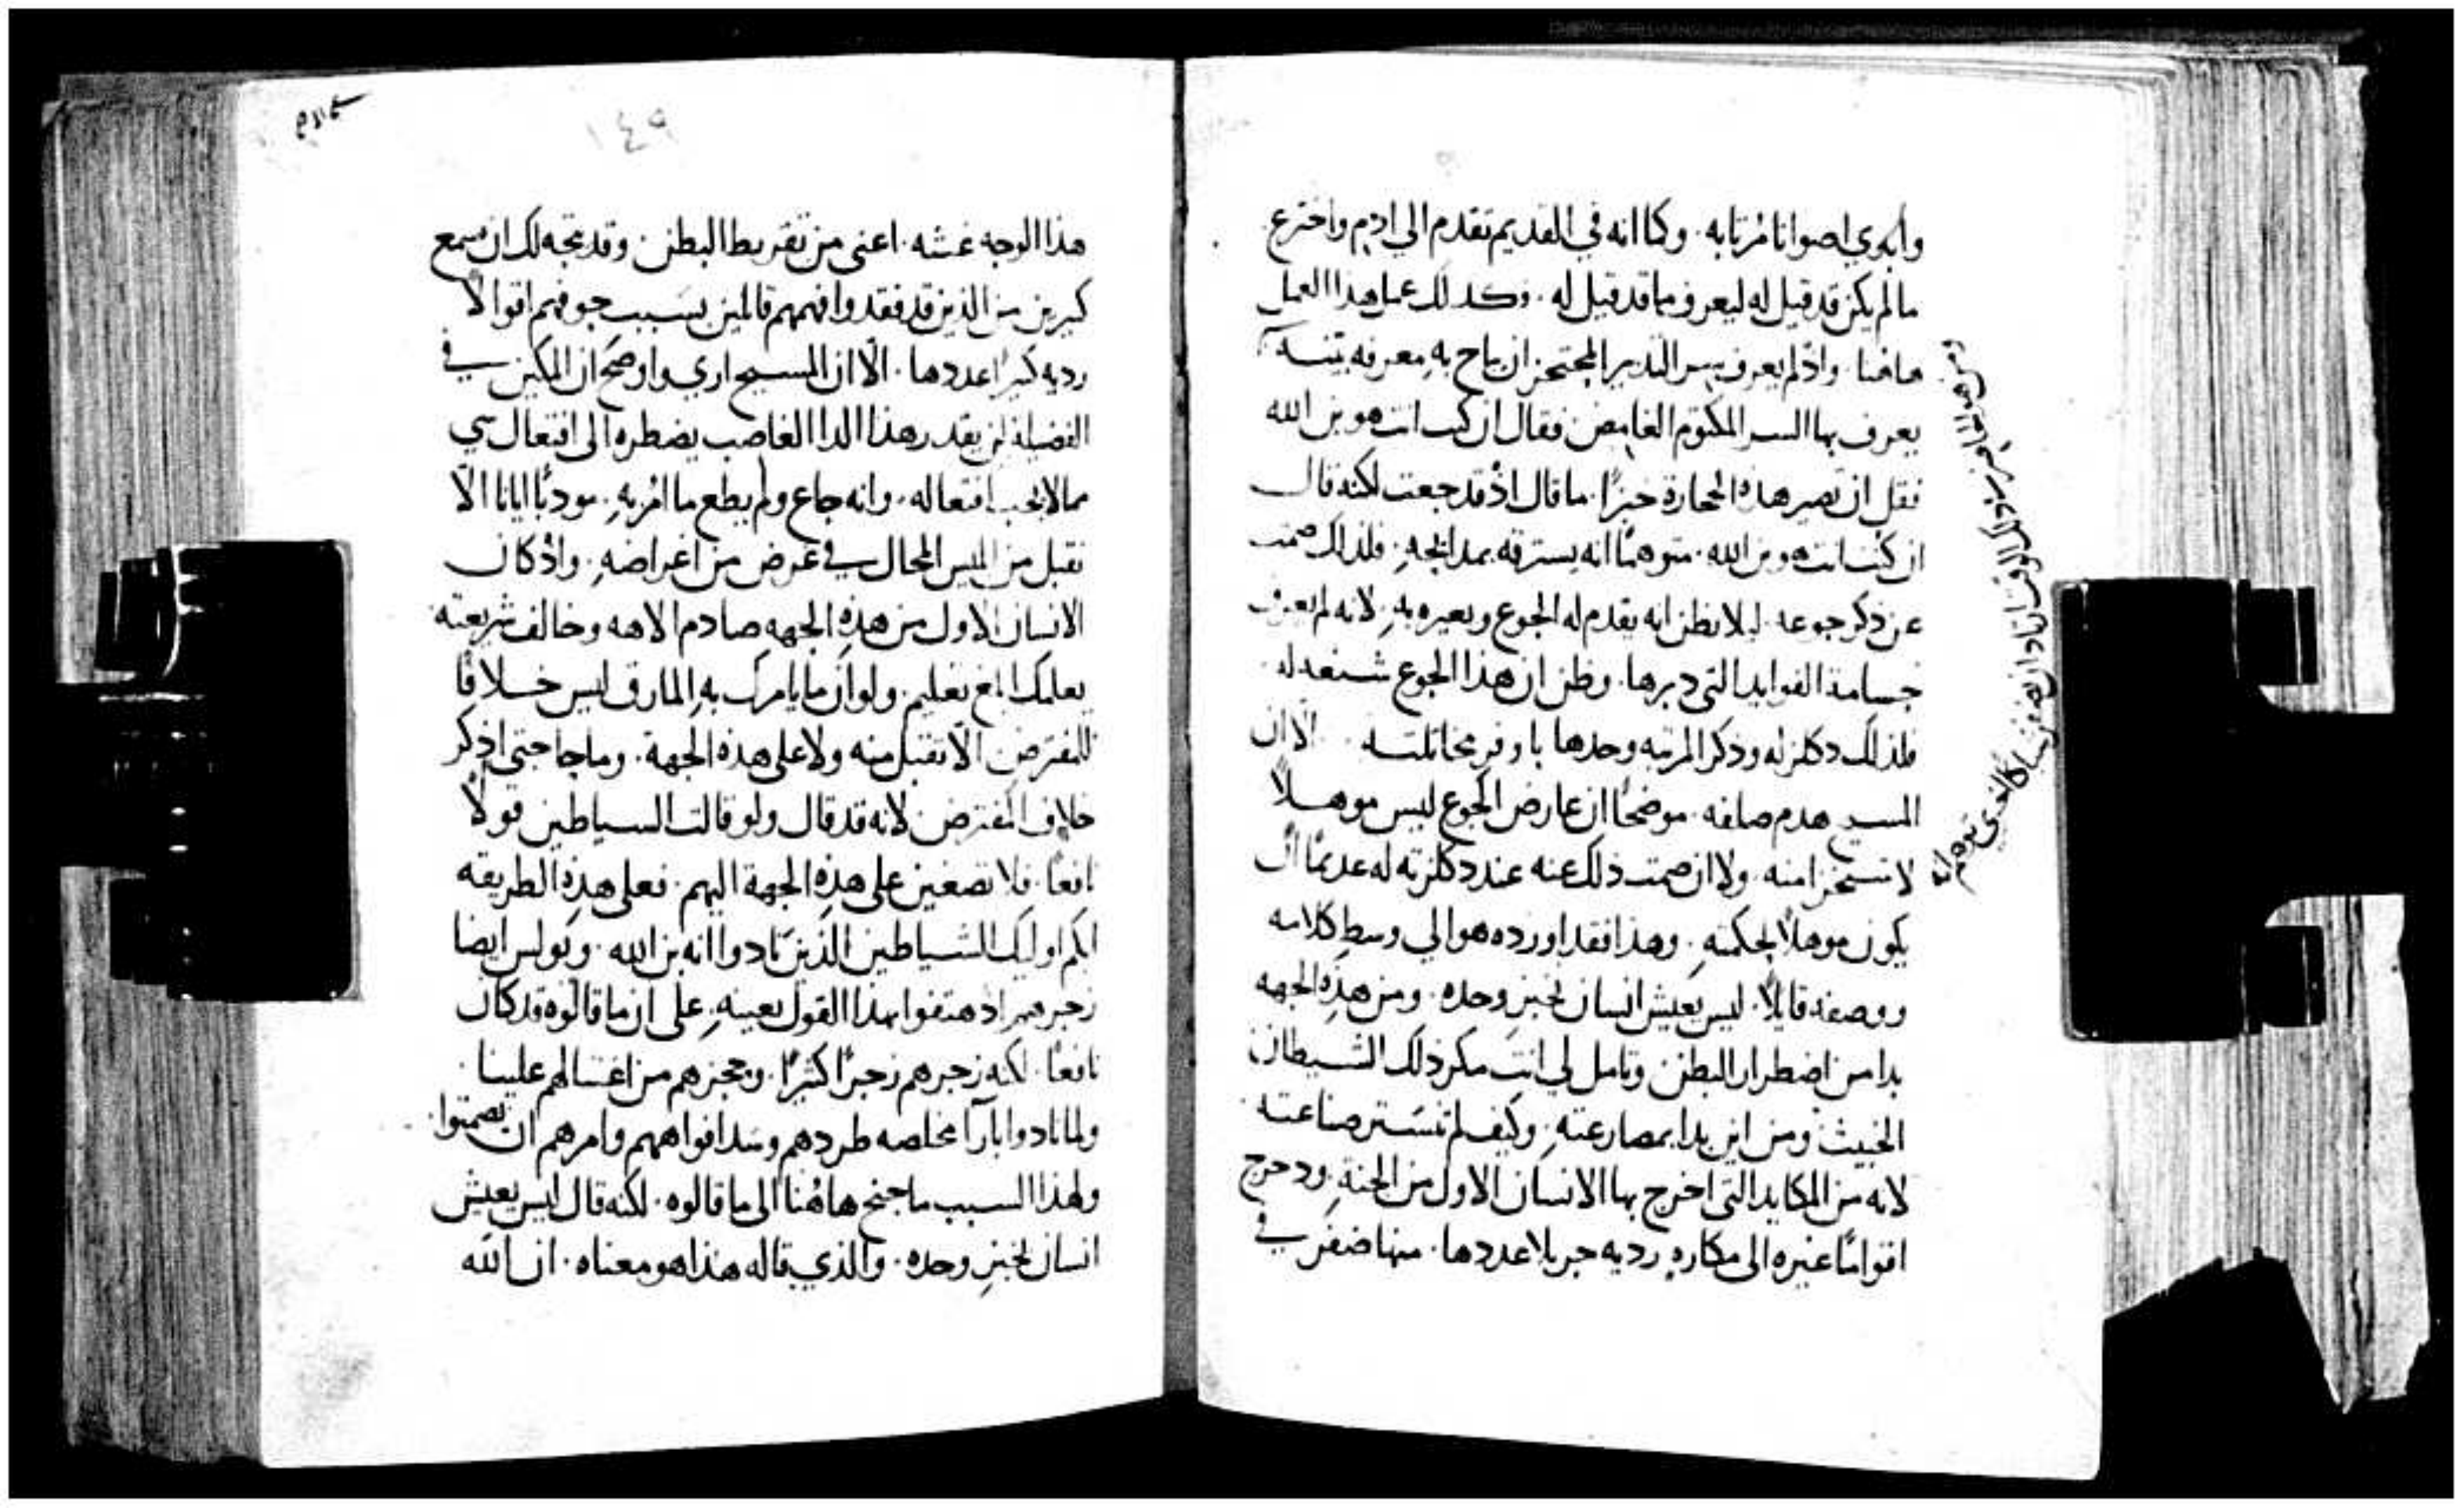 وابوي اصواتا مرتابه . وكما انه في القديم تقدم الي ادم واخترع
مالم يكن قد قيل له ليعرف ما قد قيل له . وكذلك عمل هذا العمل
هاهنا . واذ لم يعرف سر التدبير المحتجز ان باح به معرفه بتنه
يعرف بها السر المكتوم الغامض فقال ان كنت انت هو بن الله
فقل ان تصير هذه الحجارة خبزًا . ما قال اذ قد جعت لكنه قال
ان كنت انت هو بن الله . متوهمًا انه يسترقه بمدايحه . فلذلك صمت
عن ذكر جوعه . ليلا يظن انه يقدم له الجوع ويعيره به . لانه لم يعرف
جسامة الفوايد التي دبرها . وظن ان هذا الجوع شنعه له .
فلذلك ذكر المرتبه وحدها باوفر مخاتلته . الا ان
المسيح هدم صلفه . موضحًا ان عارض الجوع ليس موهلاً
لا ... منه . ولا ان صمت ذلك عنه عند ... له عدمًا ان
يكون موهلاً لحكمته . وهذا فقد اورده هو الي وسط كلامه
ووصفه قايلاً . ليس يعيش انسان بخبز وحده . ومن هذه الجهه
بدا من اضطرار البطن وتامل لي انت مكر ذلك الشيطان
الخبيث ومن اين بدا بمصارعته . وكيف لم تستتر صناعته .
لانه من المكايد التي اخرج بها الانسان الاول من الجنة . ودحرج
اقوامًا غيره الى مكاره رديه جزيلا عددها . منها ضفر في
١٤٩
هذا الوجه غشه . اعني من تفريط البطن . وقد يتجه لك ان تسمع
كثيرين من الذين قد فقدوا فهمهم قايلين بسبب جوفهم اقوالاً
رديه كثيرًا عددها . الا ان المسيح اري واوضح ان المكين في
الفضيله لن يقدر هذا الدا الغاصب يضطره الى افتعال شي
مما لا يجب افتعاله . وانه جاع ولم يطع ما امر به . مودبًا ايانا الا
نقبل من ابليس المحال في غرض من اغراضه . واذ كان
الانسان الاول من هذه الجهه صادم الاهه وخالف شريعته
يعلمك ابلغ تعليم . ولو ان ما يامرك به المارق ليس خلافًا
للمفترض الا تقبل منه ولا على هذه الجهة . وما حاجتي اذكر
خلاف المفترض لانه قد قال ولو قالت الشياطين قولاً
نافعًا . فلا تصغين على هذه الجهة اليهم . فعلى هذه الطريقه
ابكم اوليك الشياطين الذين نادوا انه بن الله . وبولس ايضا
زجرهم اذ هتفوا بهذا القول بعينه . على ان ما قالوه قد كان
نافعًا . لكنه زجرهم زجرًا كثيرًا . وحجزهم من اغتيالهم علينا .
ولما نادوا باراً مخلصه طردهم وسد افواههم وامرهم ان يصمتوا .
ولهذا السبب ما جنح هاهنا الى ما قالوه . لكنه قال ليس يعيش
انسان بخبز وحده . والذي قاله هذا هو معناه . ان الله